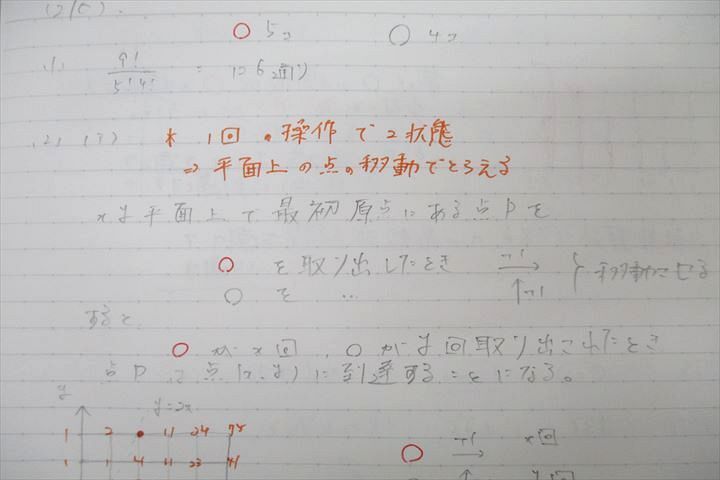 (2/5).
○ 5コ ○ 4コ
(1) 9!/5!4! = 126通り
(2) (3) * 1回の操作で2状態
⇒ 平面上の点の移動でとらえる
xy平面上で最初原点にある点Pを
○ を取り出したとき +1→
○ を … ↑+1 } 移動させる
すると、
○ が x回, ○ が y回取り出されたとき
点P は点(x, y) に到達することになる。
y y=2x
1 2 11 24
1 1 4 11 23 41
○ +1→ x回
○ ↑ y回